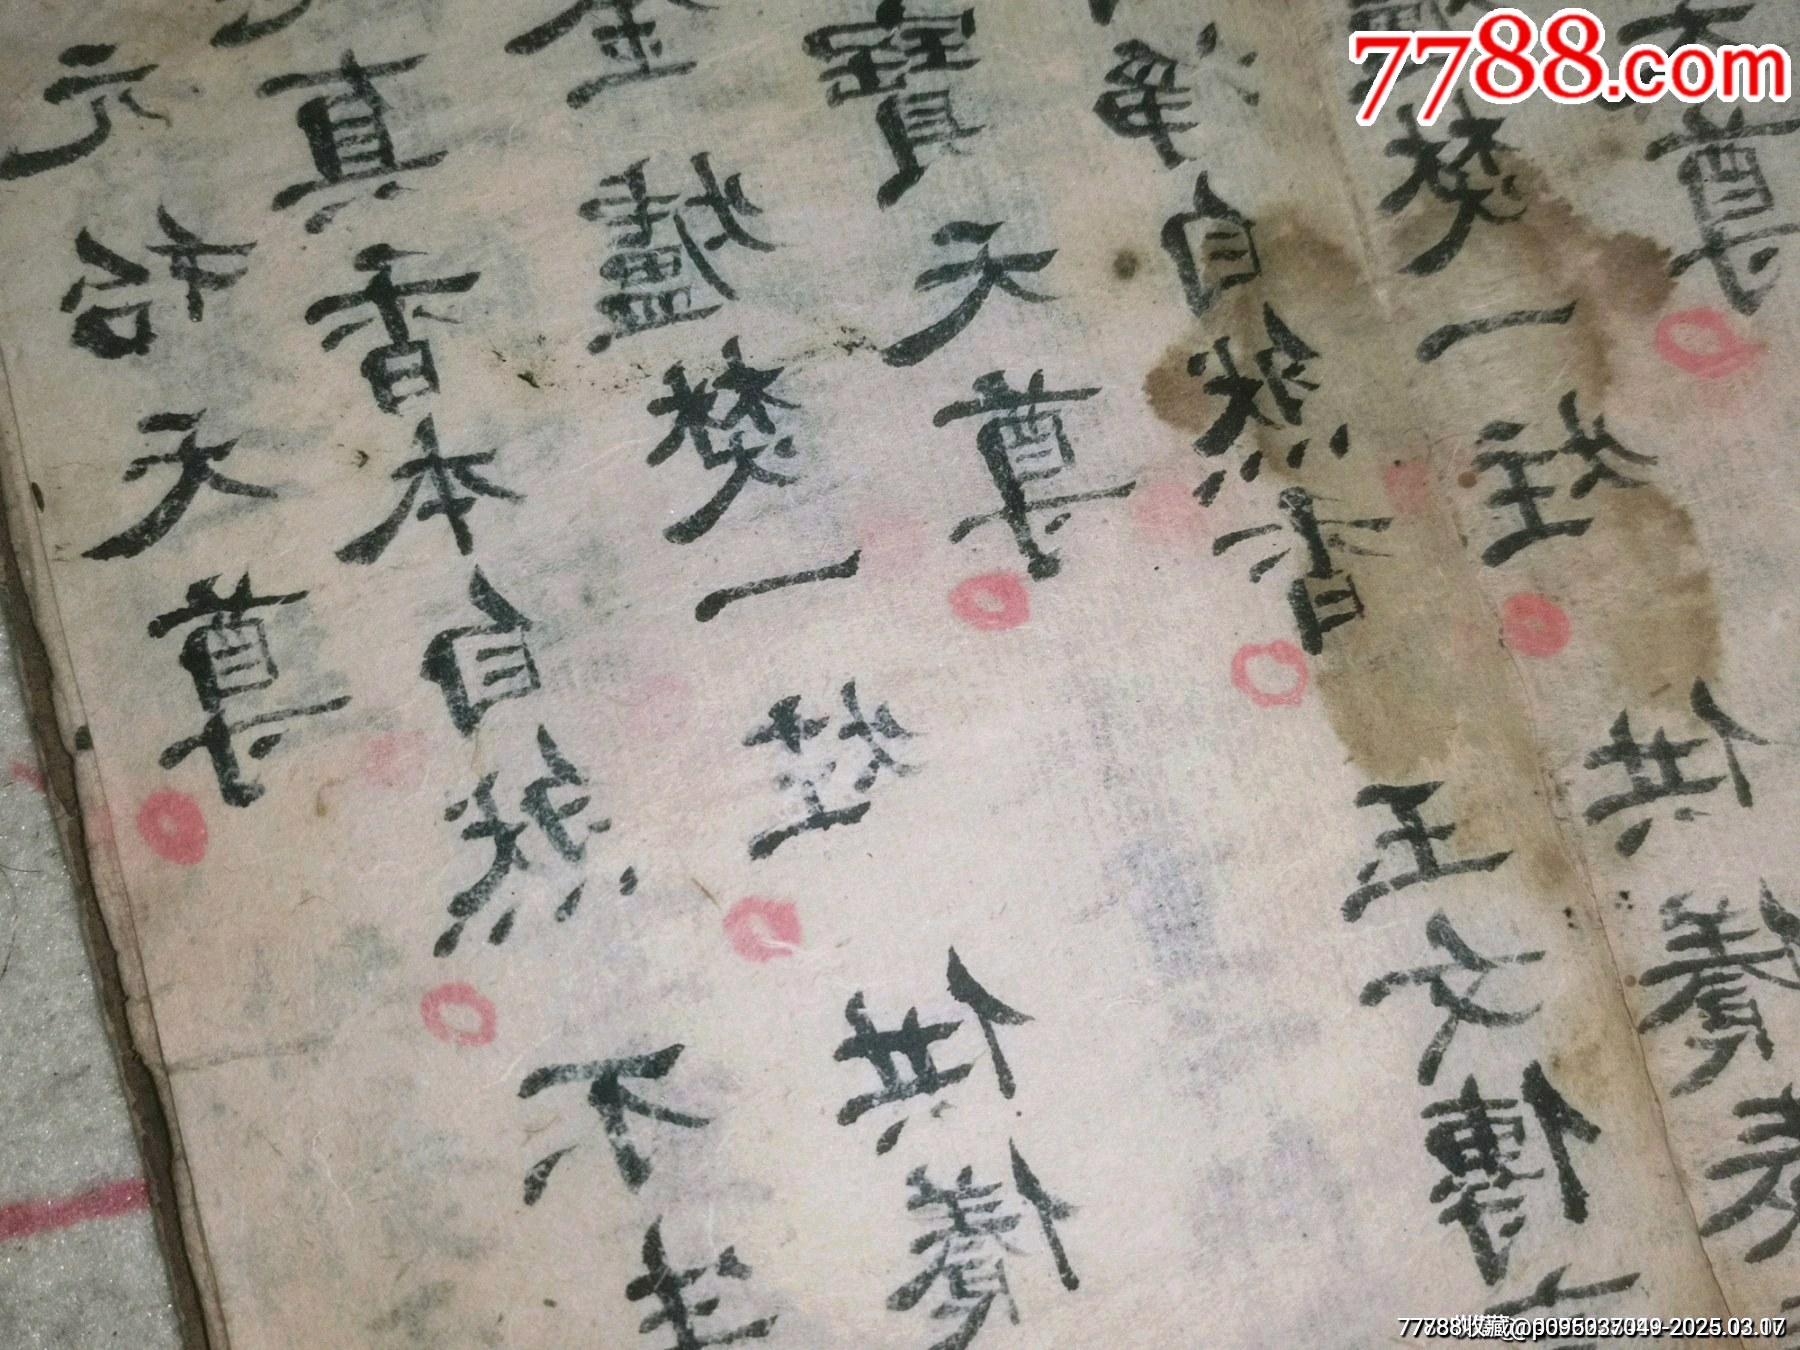 元始天尊
真香本自然 不生
金爐焚一炷 供養
寶天尊
淨自然香 玉文傳
焚一炷 供養
天尊
7788.com
7788收藏@p095037049-2025.03.17